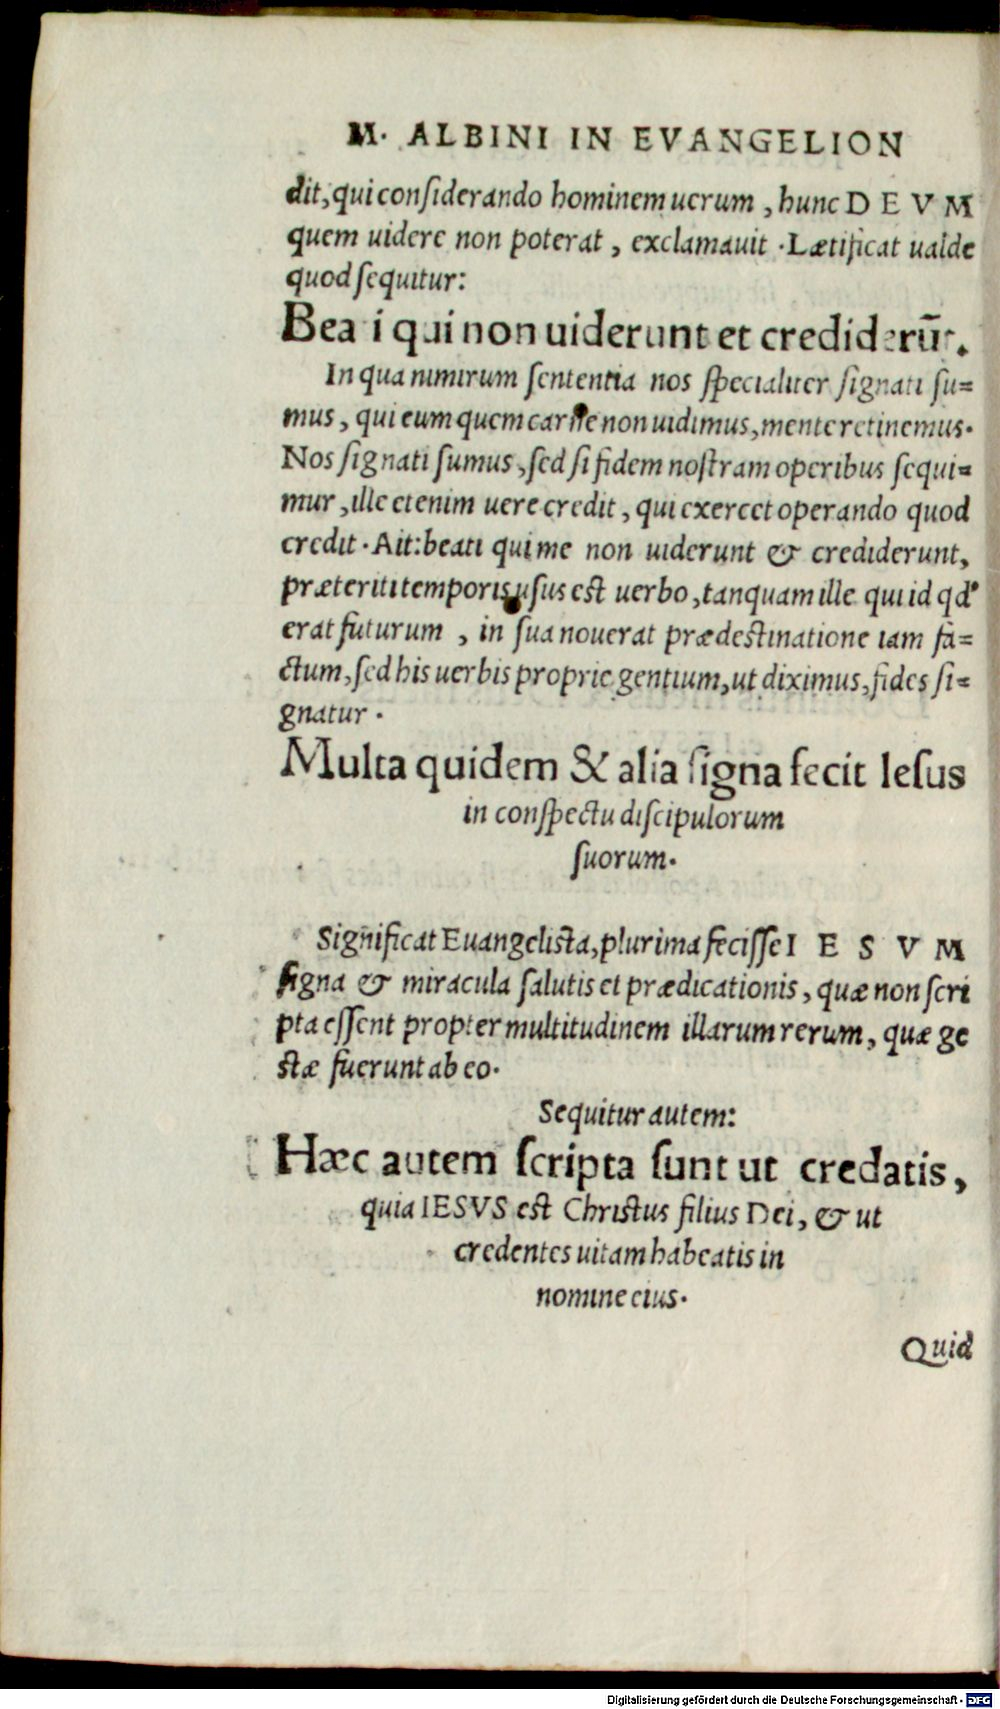 M. ALBINI IN EVANGELION
dit, qui considerando hominem uerum, hunc DEVM
quem uidere non poterat, exclamauit. Lætificat ualde
quod sequitur:
Bea i qui non uiderunt et crediderūt.
In qua nimirum sententia nos specialiter signati su=
mus, qui eum quem carne non uidimus, mente retinemus.
Nos signati sumus, sed si fidem nostram operibus sequi=
mur, ille etenim uere credit, qui exercet operando quod
credit. Ait: beati qui me non uiderunt & crediderunt,
præteriti temporis usus est uerbo, tanquam ille qui id qd'
erat futurum, in sua nouerat prædestinatione iam fa=
ctum, sed his uerbis proprie gentium, ut diximus, fides si=
gnatur.
Multa quidem & alia signa fecit Iesus
in conspectu discipulorum
suorum.
Significat Euangelista, plurima fecisse IESVM
signa & miracula salutis et prædicationis, quæ non scri
pta essent propter multitudinem illarum rerum, quæ ge
stæ fuerunt ab eo.
Sequitur autem:
Hæc autem scripta sunt ut credatis,
quia IESVS est Christus filius Dei, & ut
credentes uitam habeatis in
nomine eius.
Quid
Digitalisierung gefördert durch die Deutsche Forschungsgemeinschaft - DFG